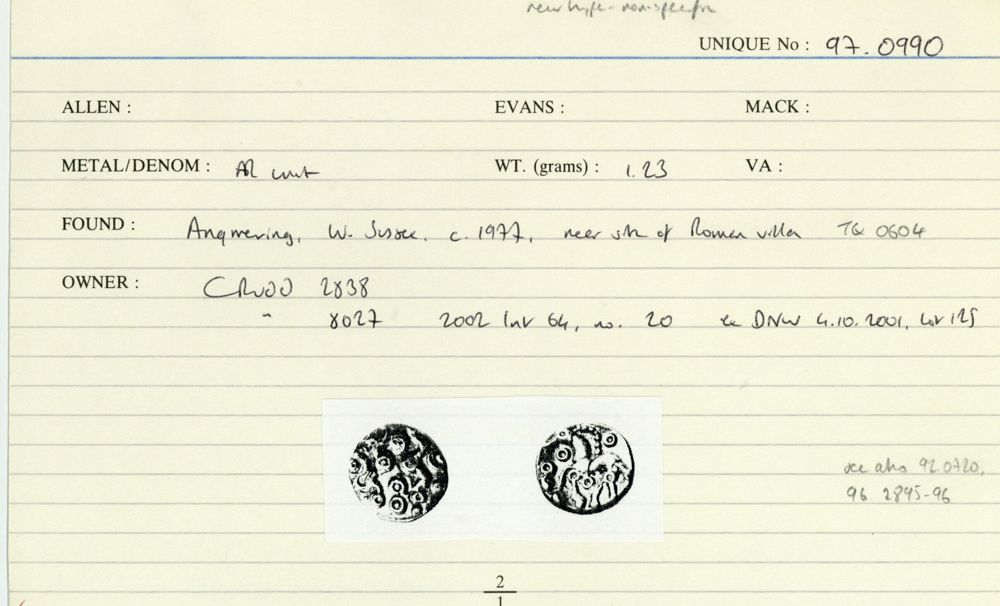 new type - non-specific
UNIQUE No : 97.0990
ALLEN : EVANS : MACK :
METAL/DENOM : AR unit WT. (grams) : 1.23 VA :
FOUND : Angmering, W. Sussex, c. 1977, near site of Roman villa TQ 0604
OWNER : CR 2838
" 8027 2002 list 64, no. 20 ex DNW 4.10.2001, lot 125
see also 92.0720,
96.2895-96
2
1